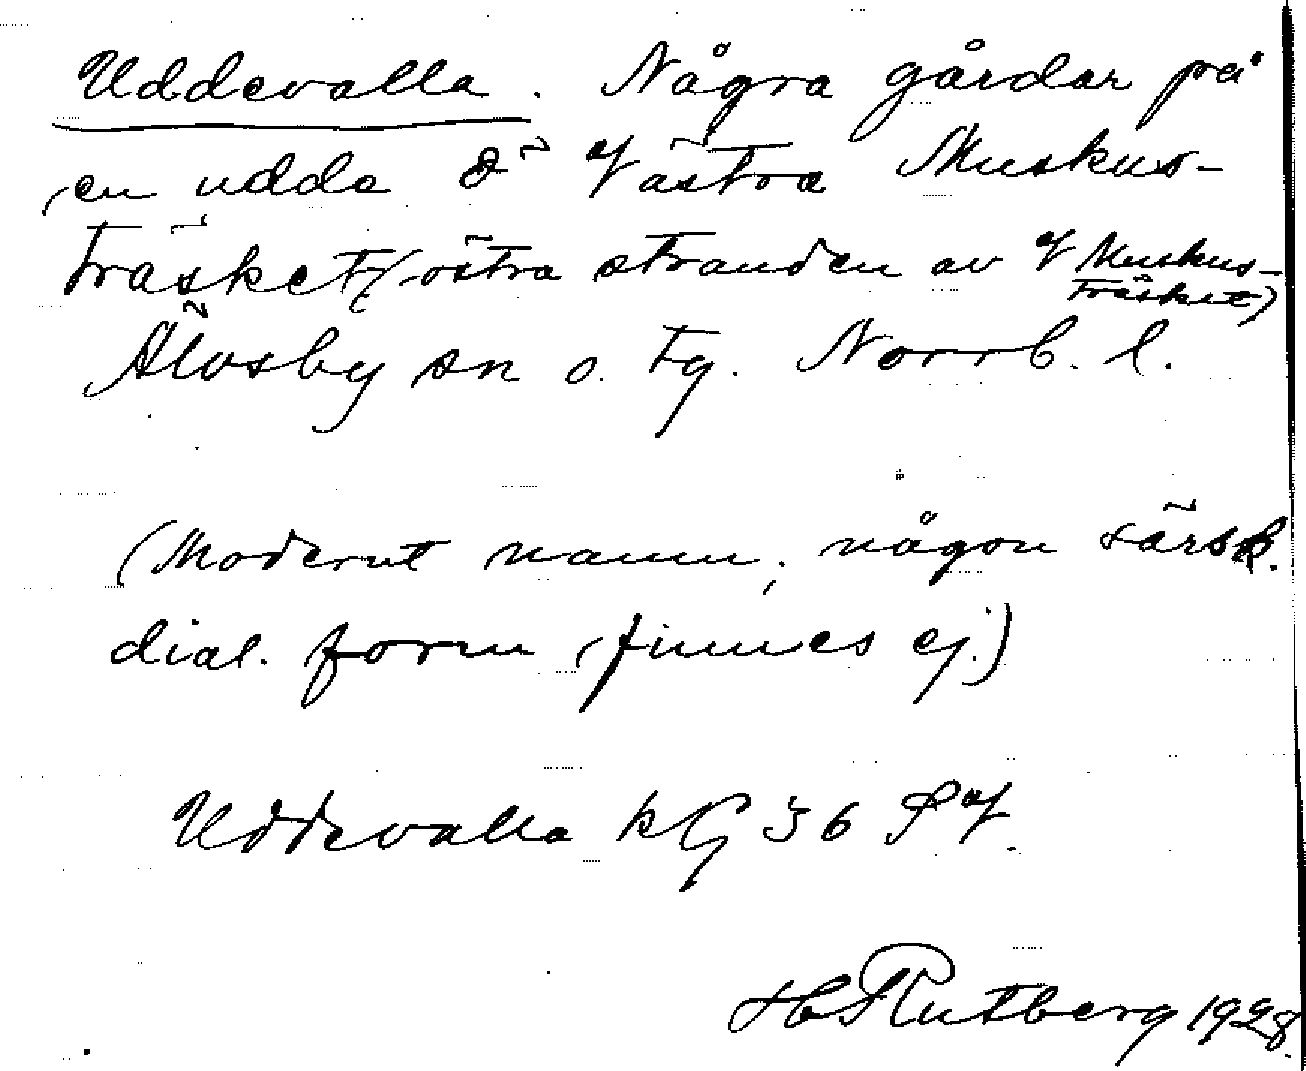 Uddevalla. Några gårdar på
en udde Ö Västra Muskus-
träsket (östra stranden av V Muskus-
träsket)
Älvsby sn o. tg. Norrb. l.
(Modernt namn; någon särsk.
dial. form finnes ej.)
Uddevalla kG 36 SV.
H Rutberg 1928.